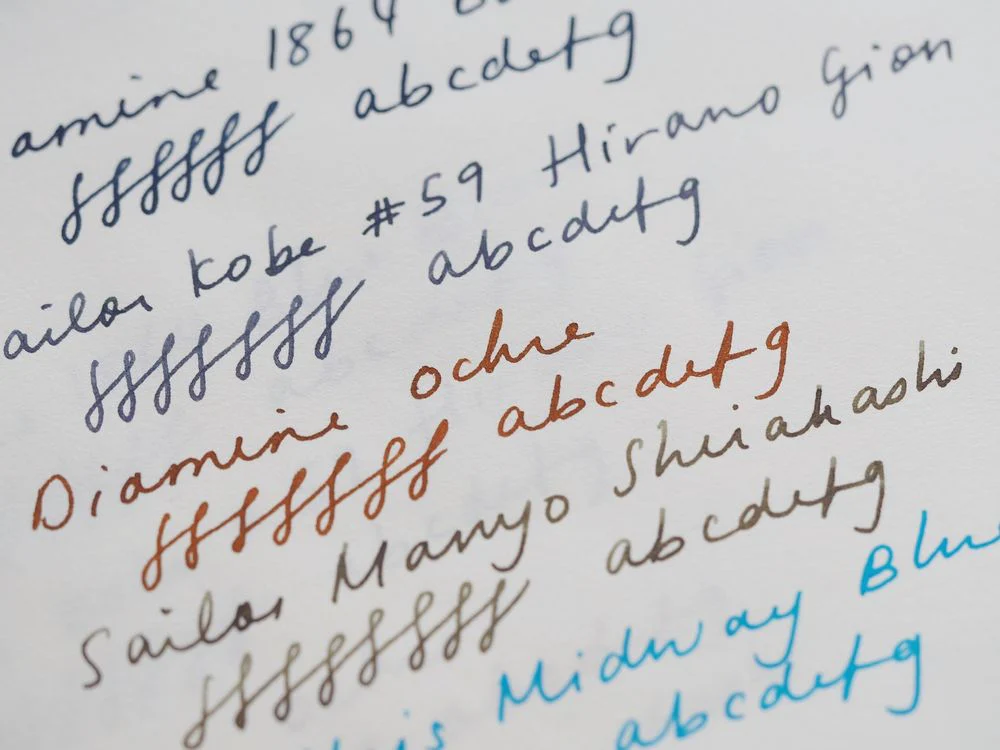 amine 1864
ffffff abcdefg
ailor Kobe #59 Hirano Gion
fffffff abcdefg
Diamine Ochre
fffffff abcdefg
Sailor Manyo Shirakashi
fffffff abcdefg
is Midway Blue
abcdefg